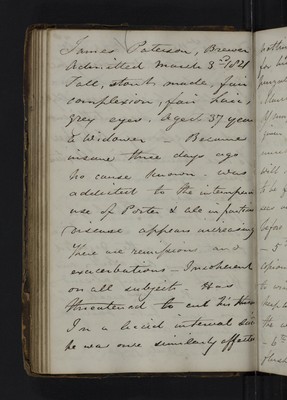 James Paterson, Brewer
Admitted March 3rd 1821
Tall, stout made, fair
complexion, fair hair,
grey eyes. Aged 37 years
a Widower – Became
insane three days ago
no cause known. was
addicted to the intemperate
use of Porter & ale in particular
Disease appears increasing
There are remissions and
exacerbations – Incoherent
on all subjects. Has
threatened to cut his throat
In a lucid interval said
he was once similarly affected